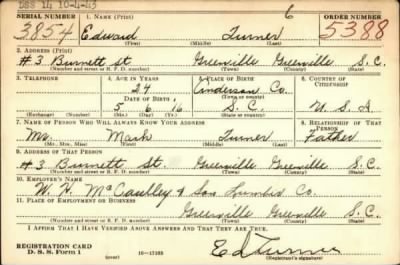 DSS 14 10-4-43
SERIAL NUMBER 1. NAME (Print) 6 ORDER NUMBER
3854 Edward Turner 5388
(First) (Middle) (Last)
2. ADDRESS (Print)
#3 Burnett St. Greenville Greenville S.C.
(Number and street or R. F. D. number) (Town) (County) (State)
3. TELEPHONE 4. AGE IN YEARS 5. PLACE OF BIRTH 6. COUNTRY OF CITIZENSHIP
24 Anderson Co.
DATE OF BIRTH (Town or county)
5 6 16 S.C. U.S.A
(Exchange) (Number) (Mo.) (Day) (Yr.) (State or country)
7. NAME OF PERSON WHO WILL ALWAYS KNOW YOUR ADDRESS 8. RELATIONSHIP OF THAT PERSON
Mr. Mark Turner Father
(Mr., Mrs., Miss) (First) (Middle) (Last)
9. ADDRESS OF THAT PERSON
#3 Burnett St. Greenville Greenville S.C.
(Number and street or R. F. D. number) (Town) (County) (State)
10. EMPLOYER'S NAME
W. H. & Son Co.
11. PLACE OF EMPLOYMENT OR BUSINESS
Greenville Greenville S.C.
(Number and street or R. F. D. number) (Town) (County) (State)
I AFFIRM THAT I HAVE VERIFIED ABOVE ANSWERS AND THAT THEY ARE TRUE.
REGISTRATION CARD
D. S. S. Form 1 (over) 16—17105 Ed Turner
(Registrant's signature)